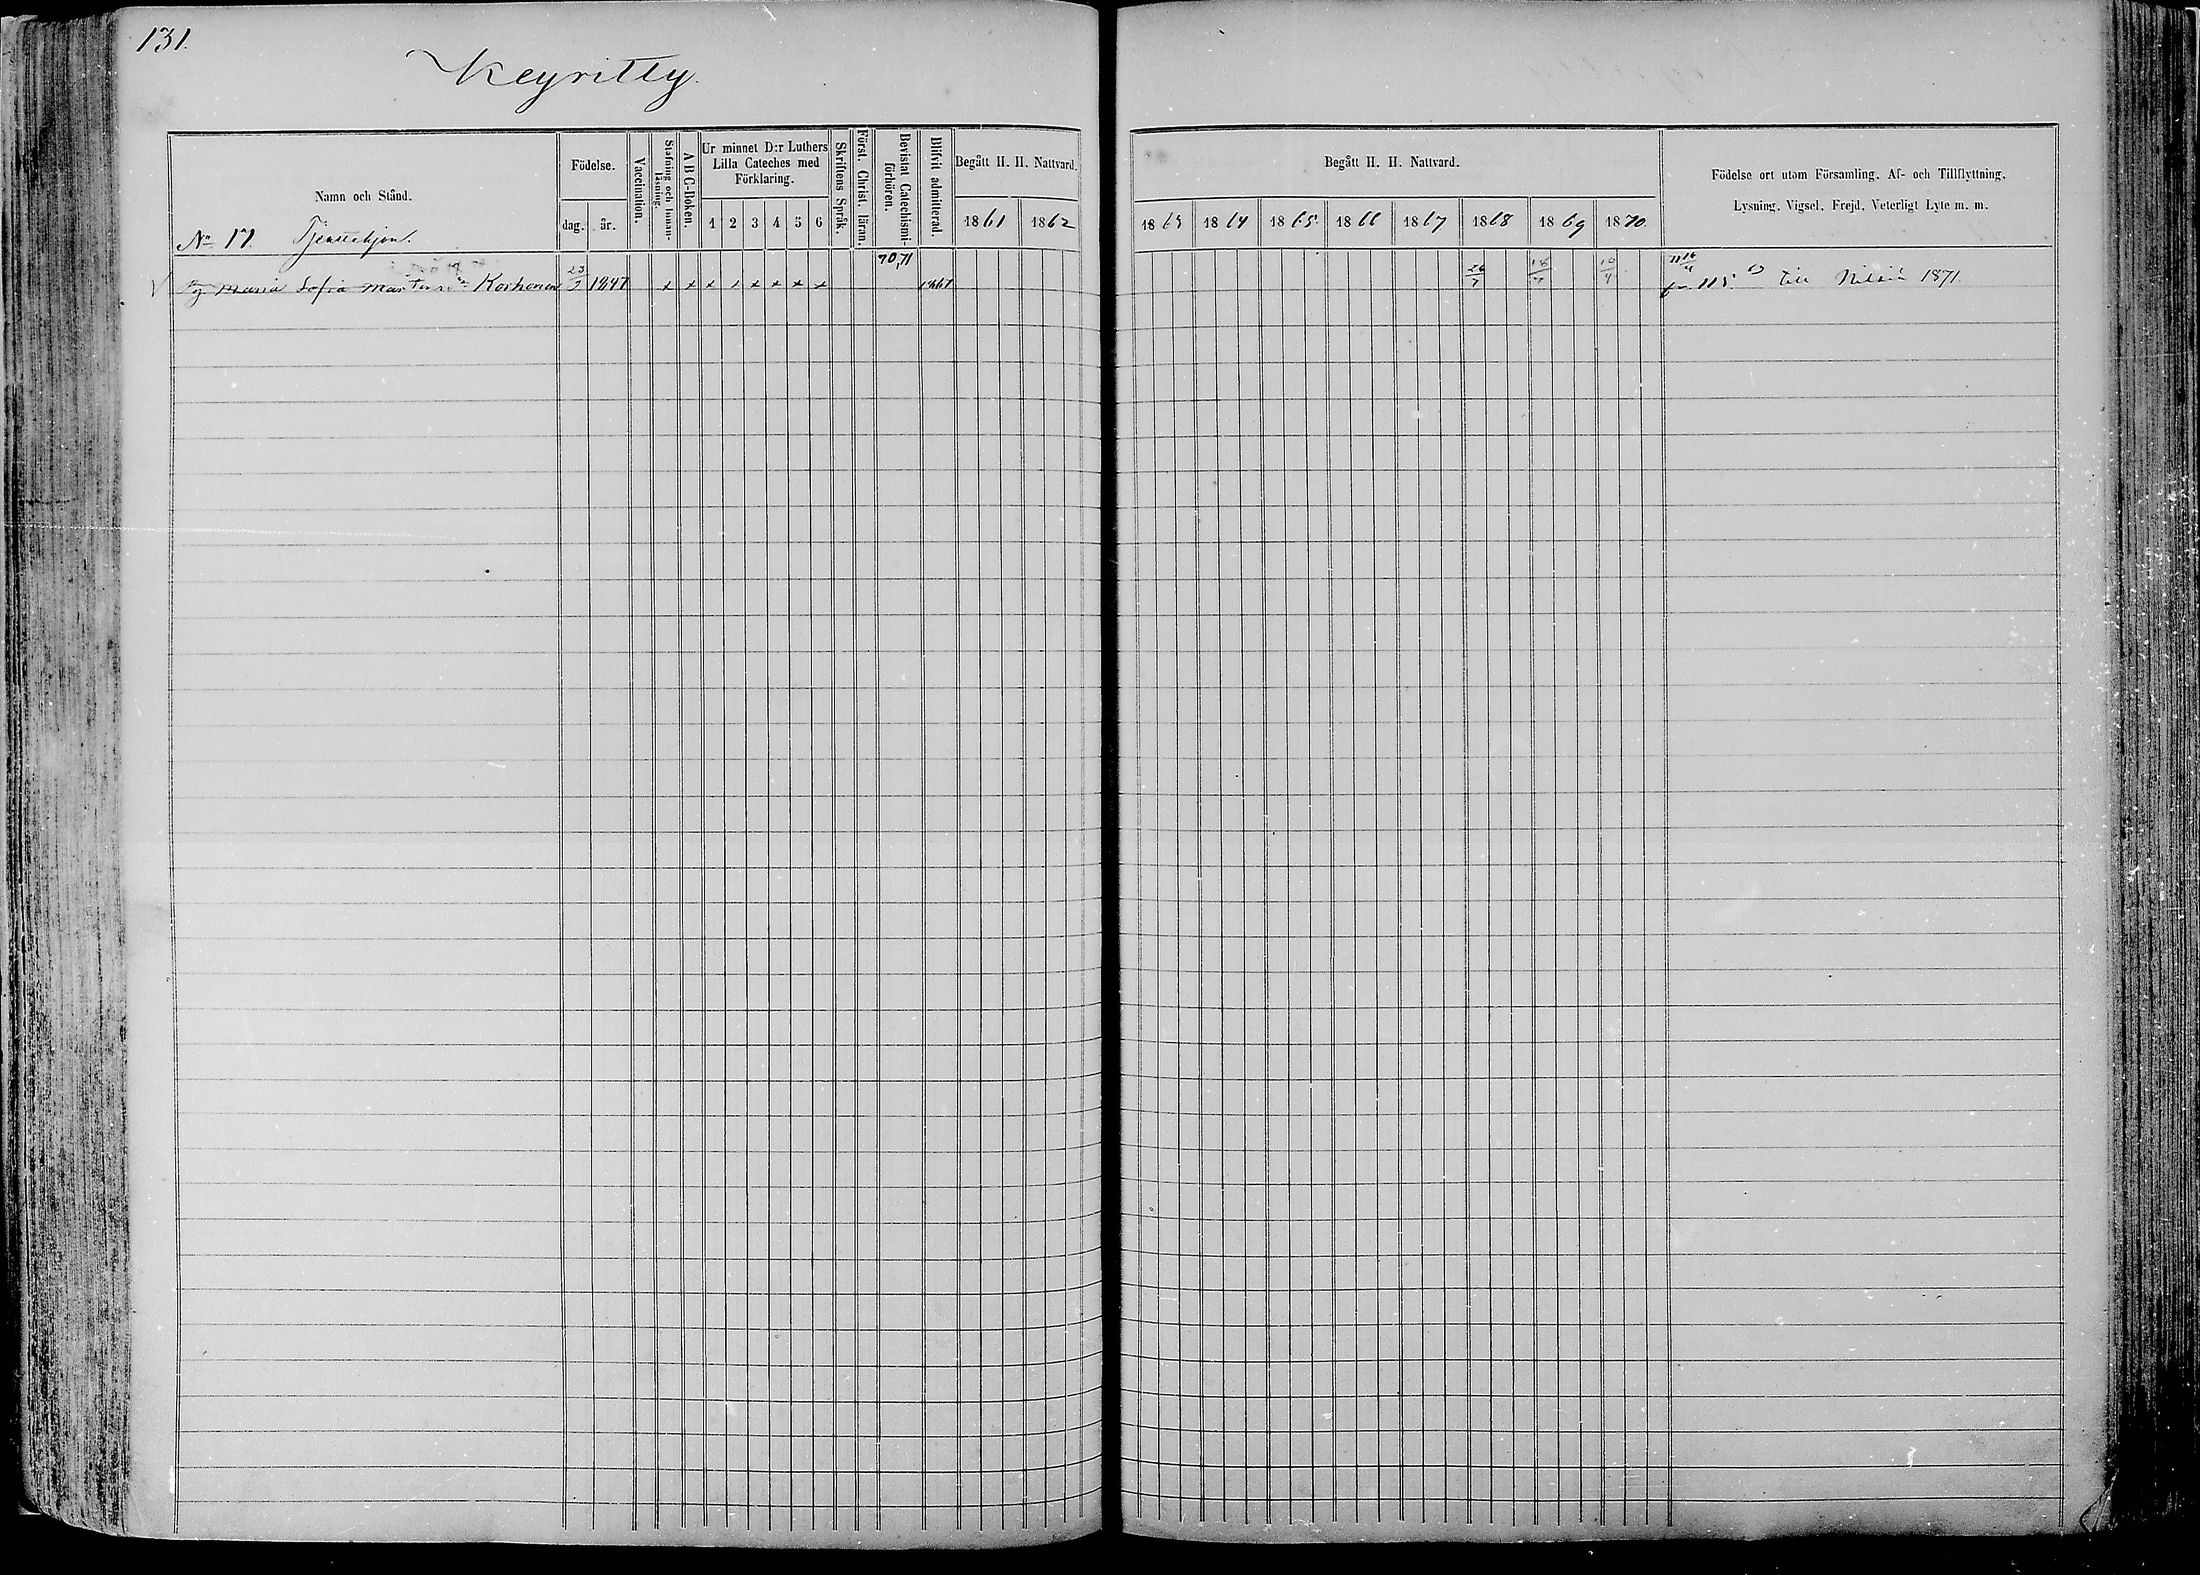 131.
Keyritty.
Namn och Stånd.
Födelse.
Vaccination.
Stafning och innan-läsning.
A B C-Boken.
Ur minnet D:r Luthers Lilla Cateches med Förklaring.
Skriftens Språk.
Först. Christ. läran.
Bevistat Catechismi-förhören.
Blifvit admitterad.
Begått H. H. Nattvard.
Begått H. H. Nattvard.
Födelse ort utom Församling. Af- och Tillflyttning,
Lysning, Vigsel, Frejd, Veterligt Lyte m. m.
dag. år. 1 2 3 4 5 6 1861 1862 1863 1864 1865. 1866 1867 1868 1869 1870.
No 17. Tjenstehjon.
70, 71
Maria Sofia Korhonen 23 1847 x x x x x x x x 1867 26/7 10/4 115. till Nilsiä 1871.